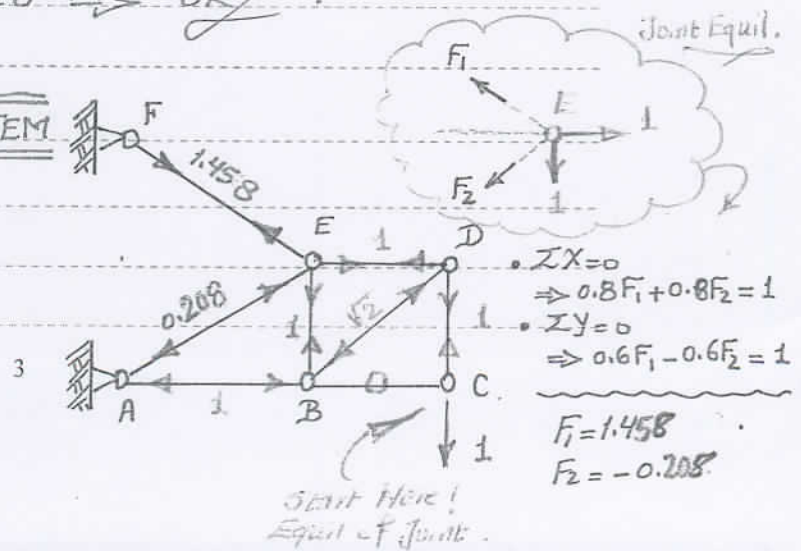 OK
Joint Equil.
F₁
E
1
F₂
1
EM
F
1.458
E
1
D
0.208
1
√2
1
3
A
1
B
0
C
1
Start Here!
Equil of Joint.
• ΣX=0
⇒ 0.8F₁+0.8F₂=1
• ΣY=0
⇒ 0.6F₁-0.6F₂=1
F₁=1.458
F₂=-0.208